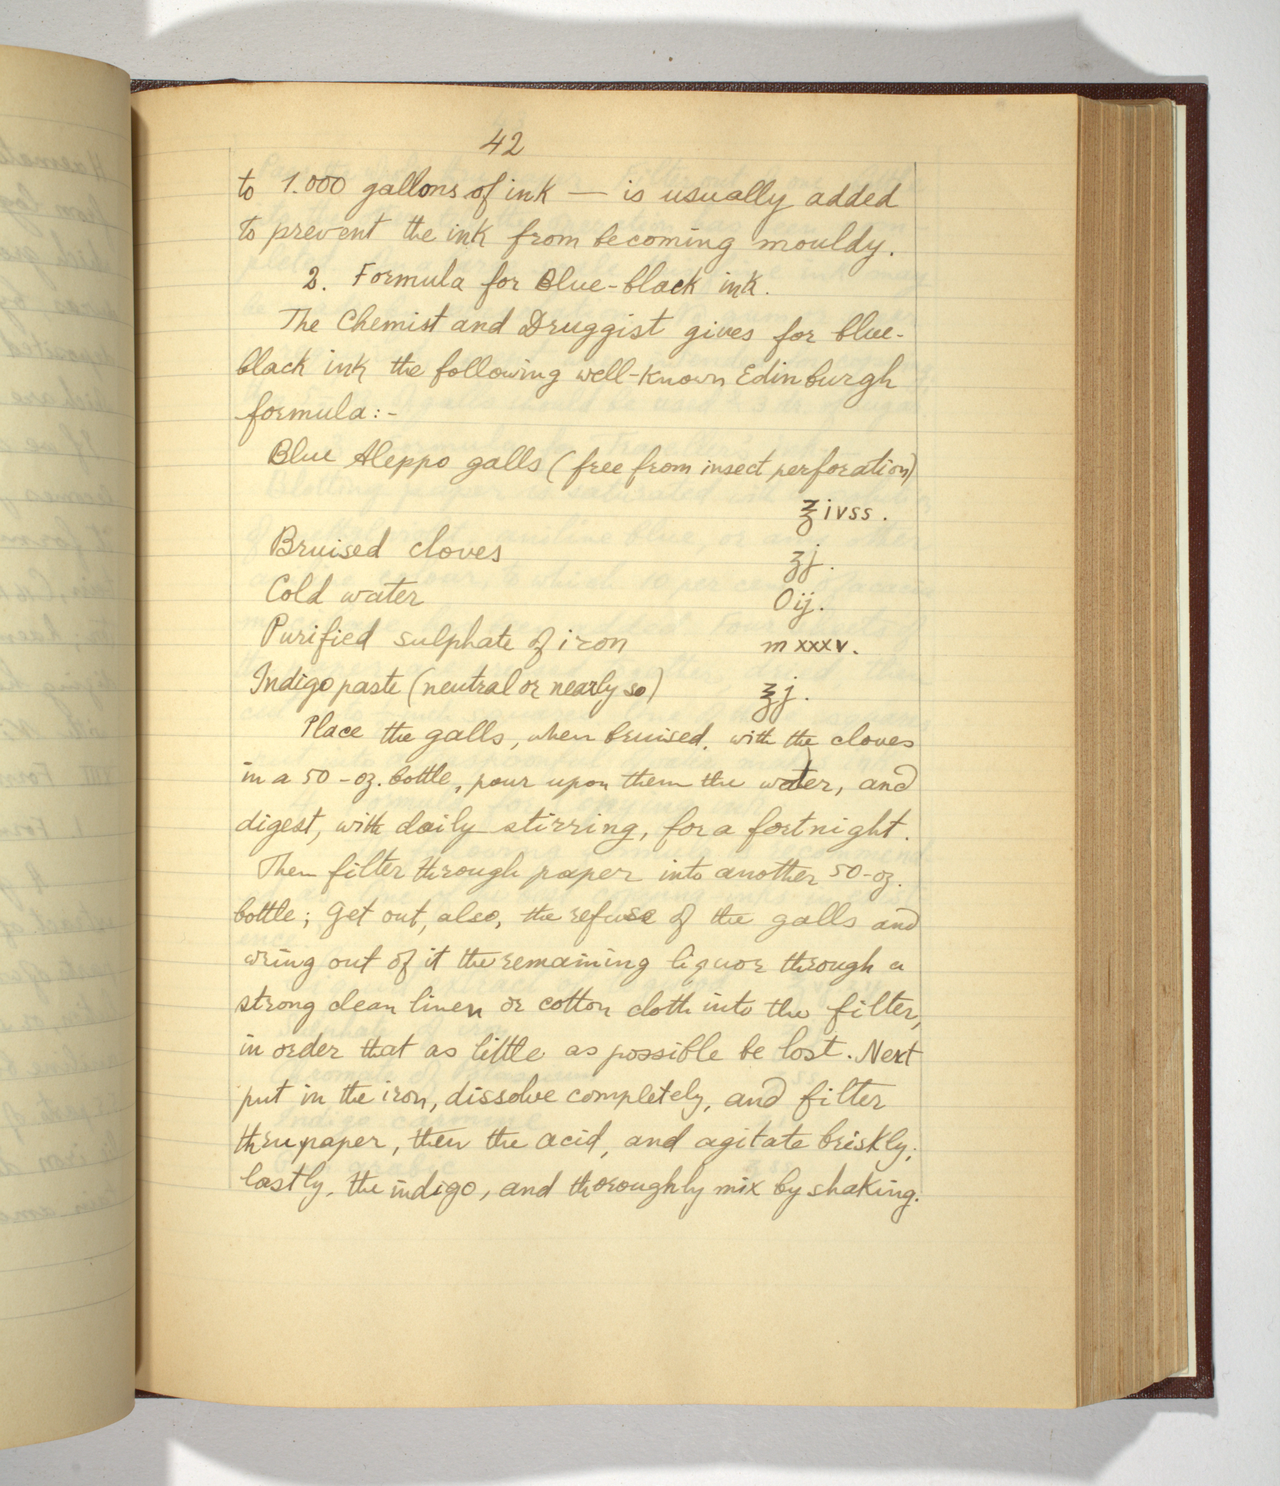 42
to 1.000 gallons of ink — is usually added
to prevent the ink from becoming mouldy.
2. Formula for Blue-black ink.
The Chemist and Druggist gives for blue-
black ink the following well-known Edinburgh
formula:-
Blue Aleppo galls (free from insect perforation)
℥ivss.
Bruised cloves ʒj.
Cold water Oij.
Purified sulphate of iron m xxxv.
Indigo paste (neutral or nearly so) ℥j.
Place the galls, when bruised, with the cloves
in a 50-oz. bottle, pour upon them the water, and
digest, with daily stirring, for a fortnight.
Then filter through paper into another 50-oz.
bottle; Get out, also, the refuse of the galls and
wring out of it the remaining liquor through a
strong clean linen or cotton cloth into the filter,
in order that as little as possible be lost. Next
put in the iron, dissolve completely, and filter
thru paper, then the acid, and agitate briskly;
lastly, the indigo, and thoroughly mix by shaking.